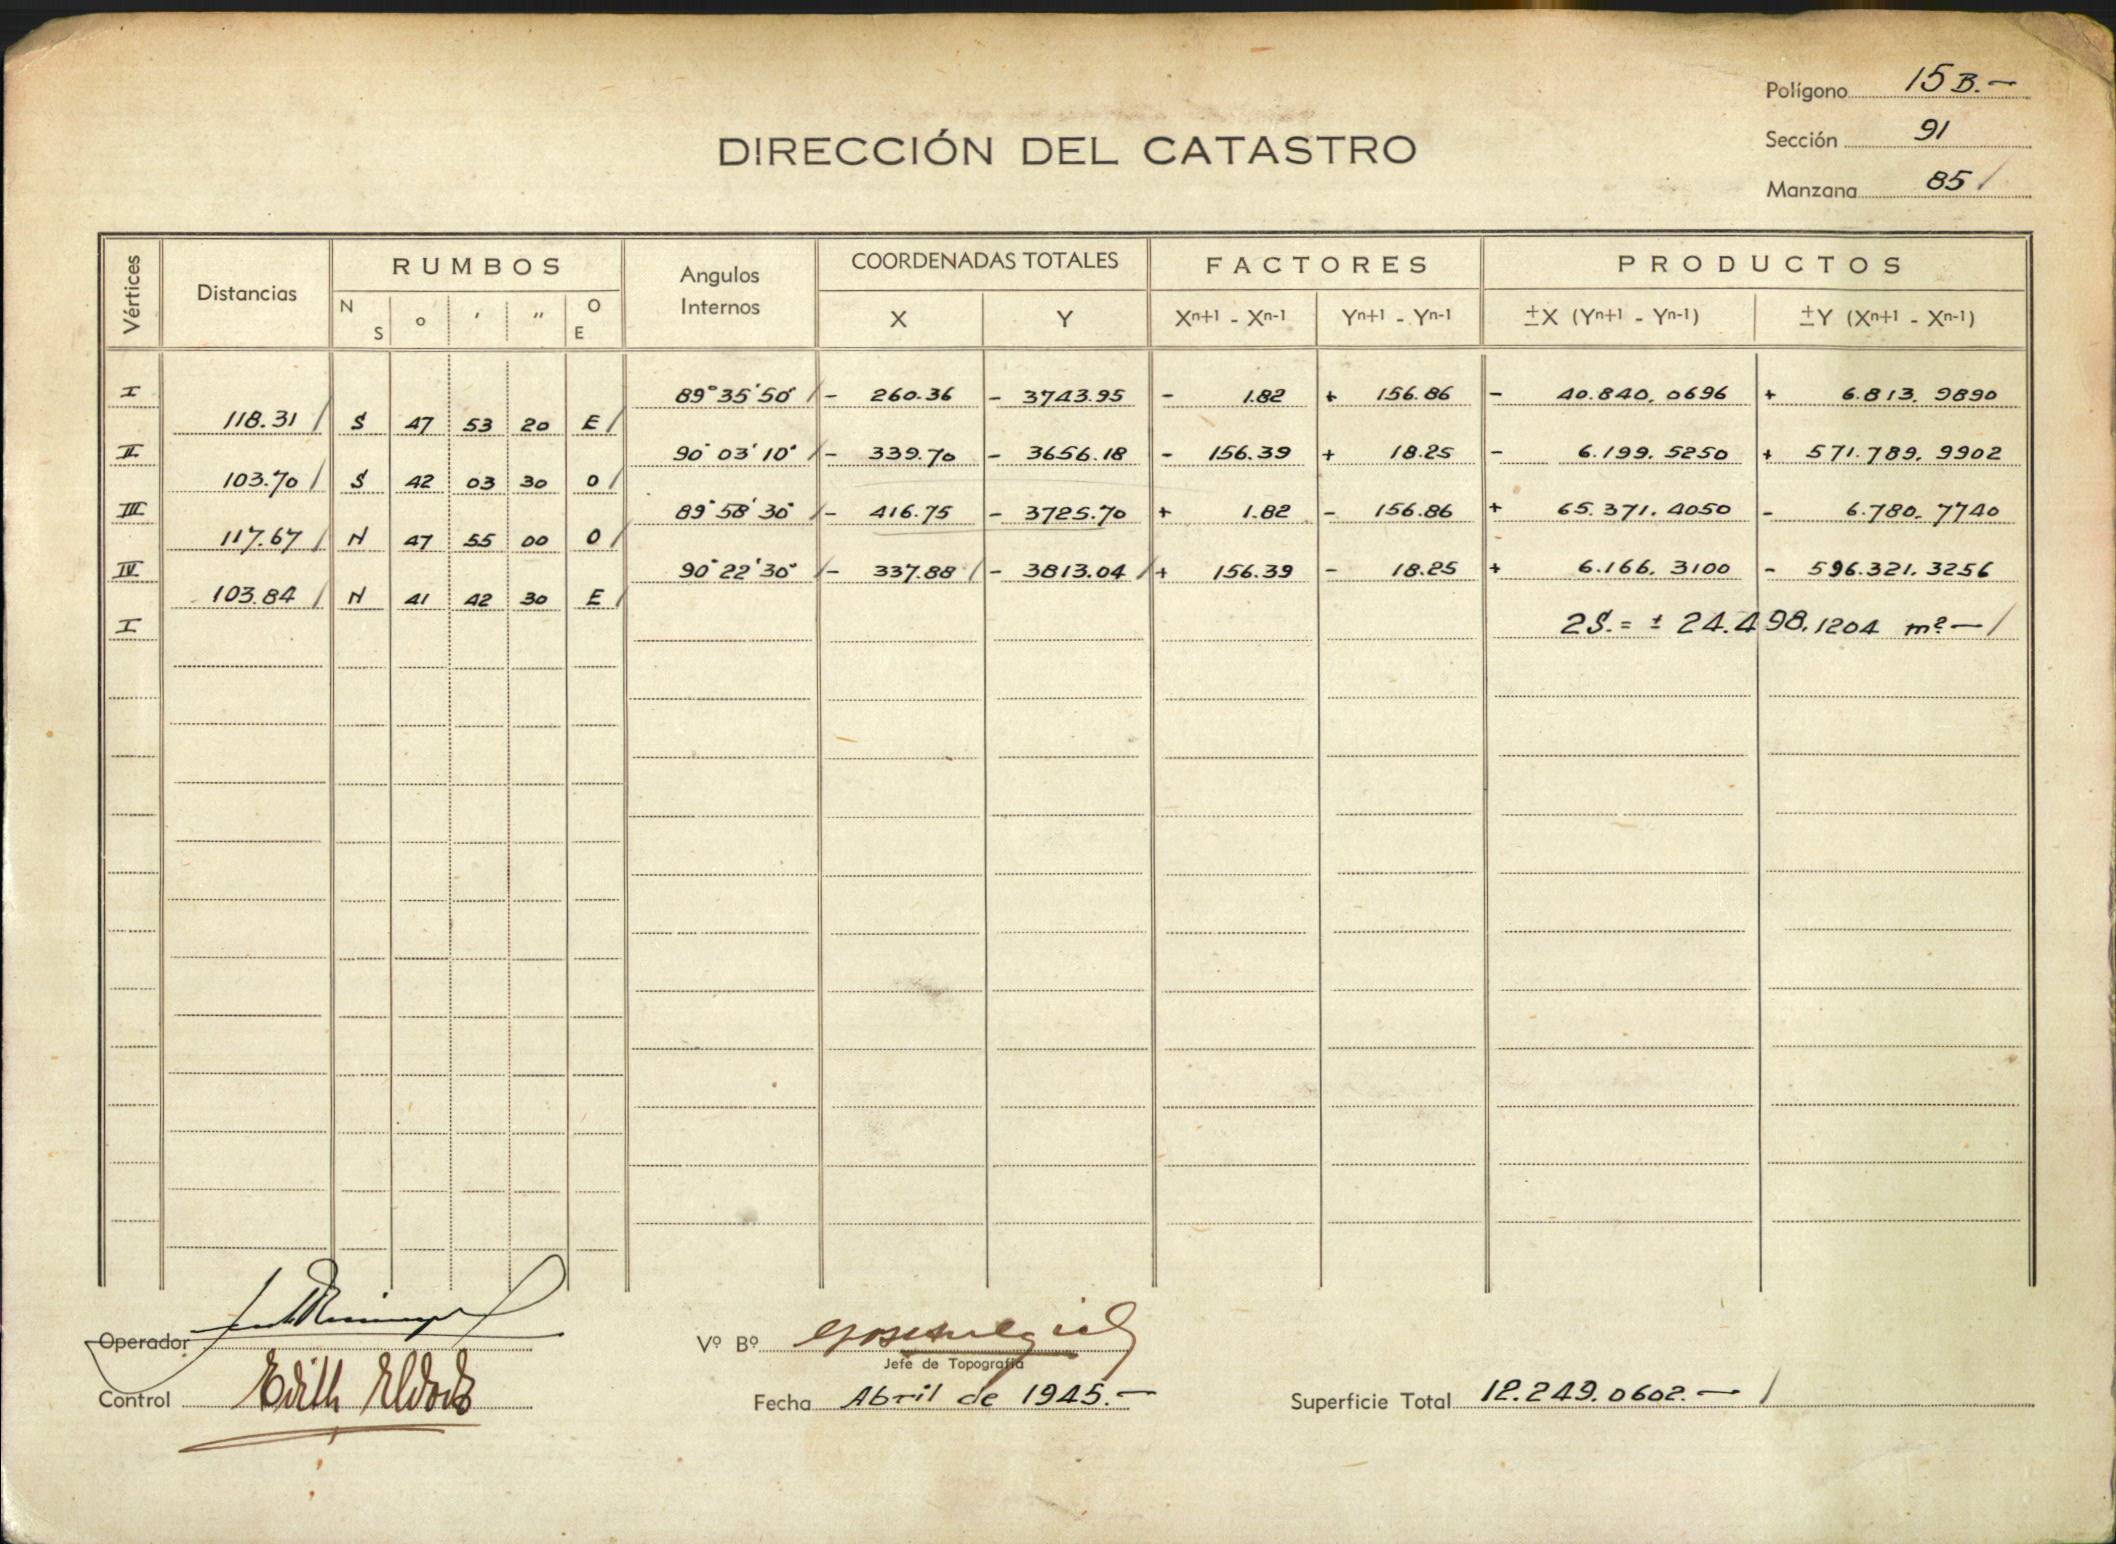 Polígono 15 B.-
Sección 91
Manzana 85 /
DIRECCIÓN DEL CATASTRO
Vértices Distancias RUMBOS Angulos Internos COORDENADAS TOTALES FACTORES PRODUCTOS
N S o ' " O E X Y Xn+1 - Xn-1 Yn+1 - Yn-1 ±X (Yn+1 - Yn-1) ±Y (Xn+1 - Xn-1)
I 89° 35' 50" / - 260.36 - 3743.95 - 1.82 + 156.86 - 40.840,0696 + 6.813,9890
118.31 / S 47 53 20 E /
II 90° 03' 10" / - 339.70 - 3656.18 - 156.39 + 18.25 - 6.199,5250 + 571.789,9902
103.70 / S 42 03 30 O /
III 89° 58' 30" / - 416.75 - 3725.70 + 1.82 - 156.86 + 65.371,4050 - 6.780,7740
117.67 / N 47 55 00 O /
IV 90° 22' 30" / - 337.88 / - 3813.04 / + 156.39 - 18.25 + 6.166,3100 - 596.321,3256
103.84 / N 41 42 30 E /
I 2S.= ± 24.498,1204 m2.- /
Operador
Vº Bº
Jefe de Topografía
Control Edith
Fecha Abril de 1945.-
Superficie Total 12.249.0602.- /